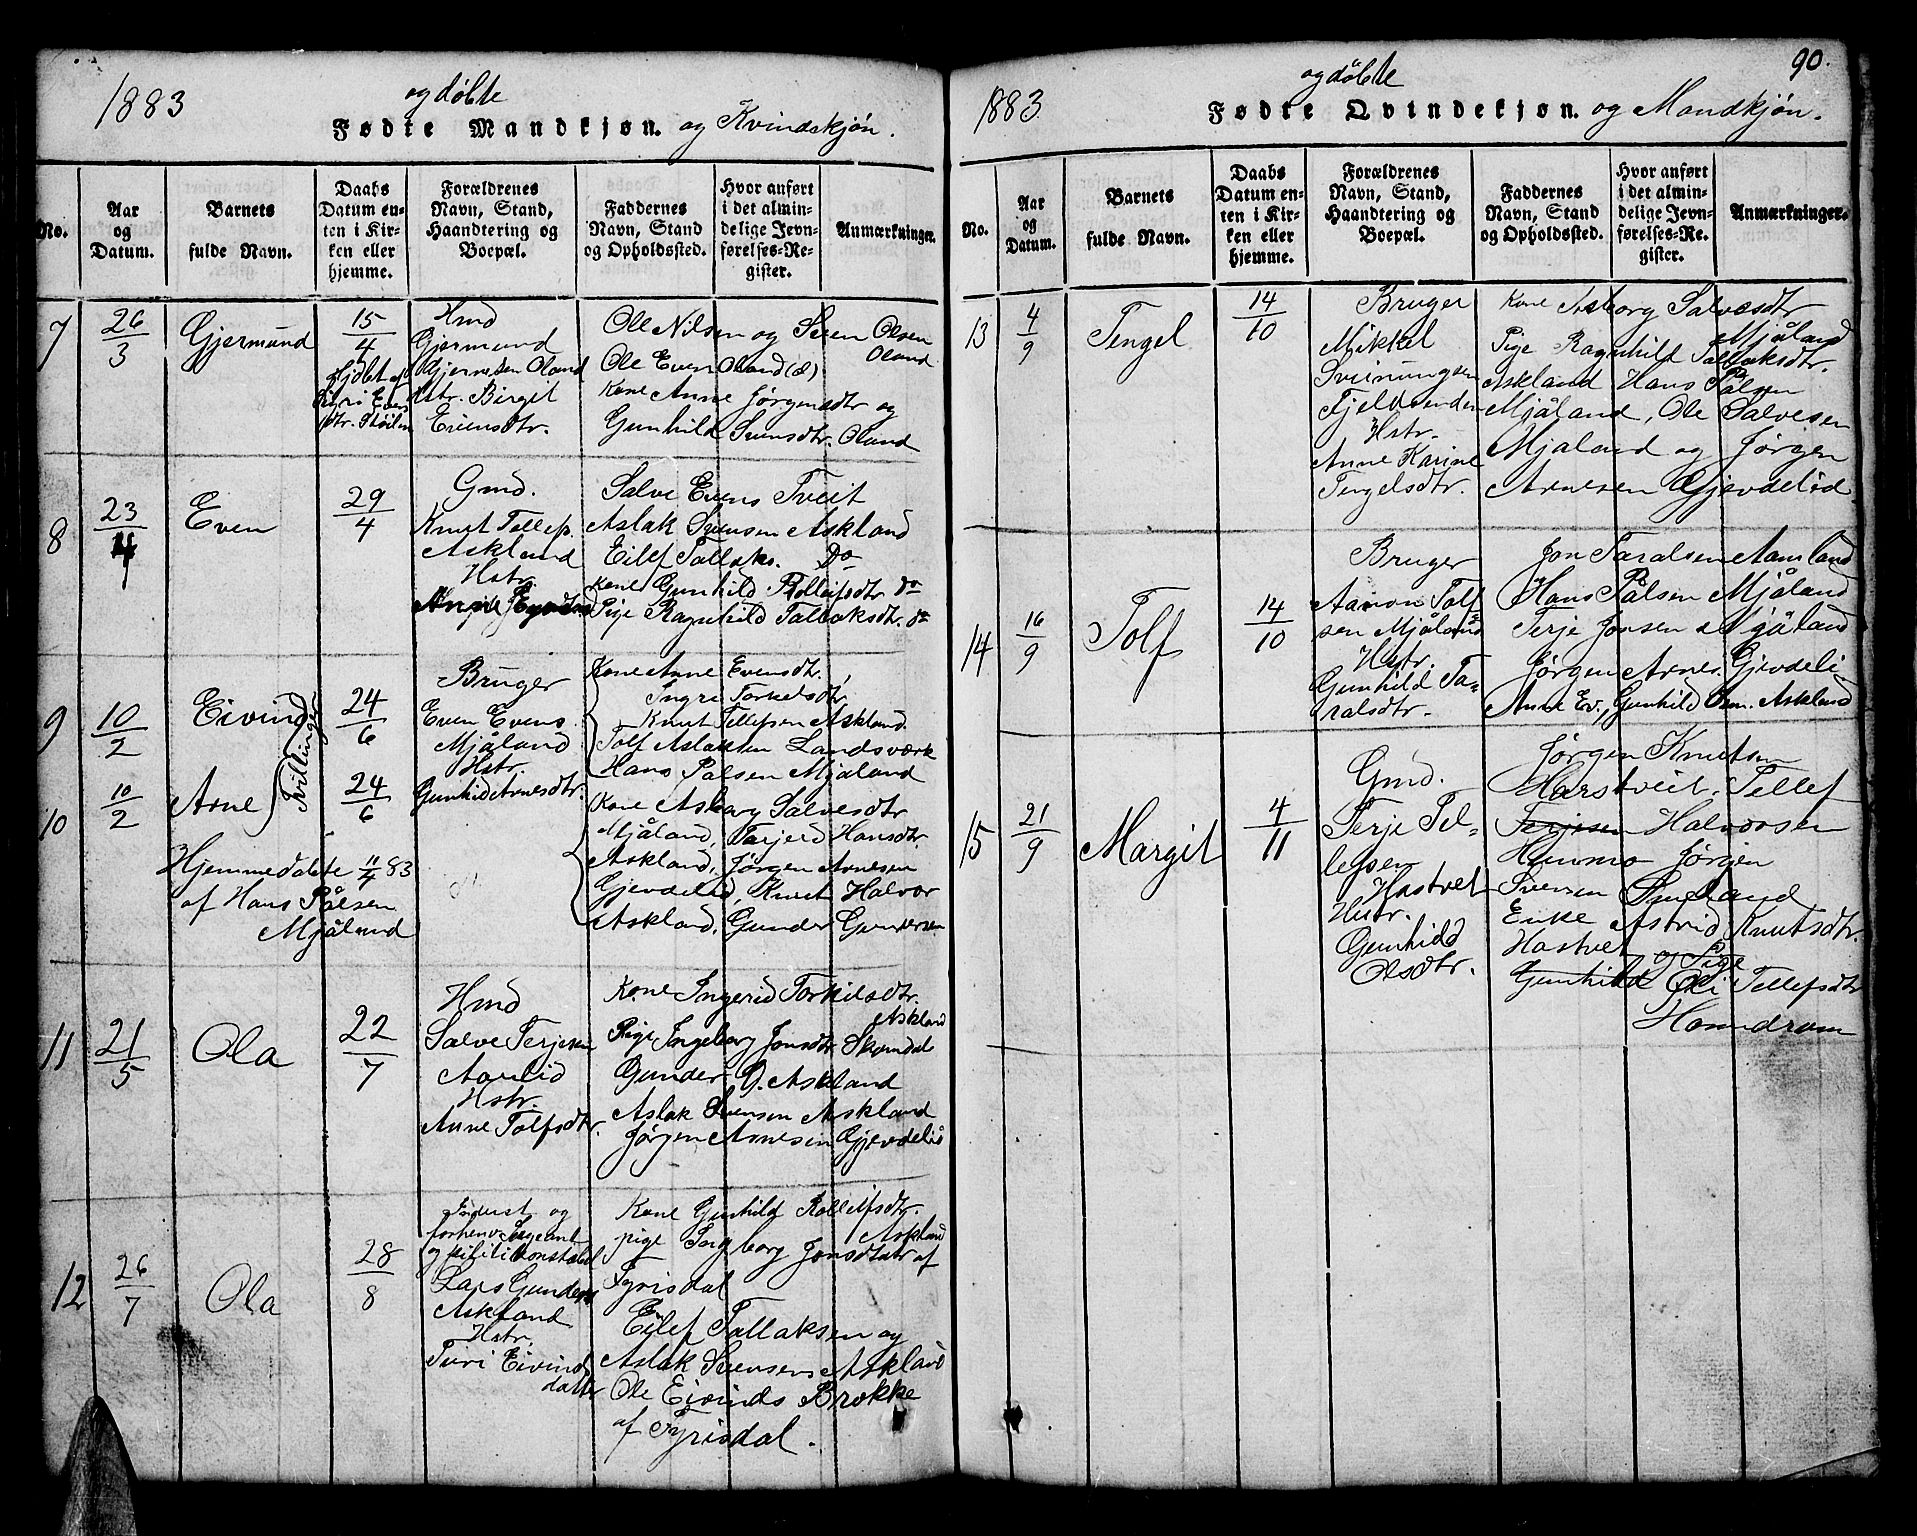 1883
og døbte
Fødte Mandkjøn. og Kvindekjøn.
No.
Aar og Datum.
Barnets fulde Navn.
Daabs Datum enten i Kirken eller hjemme.
Forældrenes Navn, Stand, Haandtering og Boepæl.
Faddernes Navn, Stand og Opholdssted.
Hvor anført i det almindelige Jevnførelses-Register.
Anmærkninger.
7
26/3
Gjermund
15/4
Hmd
Gjermund
Gjermdsen Oland
Hstr. Birgit
Eivensdtr.
Ole Nilsen og Sven Olsen
Oland
Ole Even Oland (æ)
Kone Anne Jørgensdtr og
Gunhild Svensdtr. Oland
8
23/4
Even
29/4
Gmd.
Knut Tellefs.
Askland
Hstr.
Salve Evens Tveit
Aslak Svensen Askland
Eilef Tallaks. Do
Kone Gunhild Rolleifsdtr do
Pige Ragnhild Tallaksdtr. do
9
10/2
Eivind
24/6
Tvillinger
Bruger
Even Evens.
Mjåland
Hstr.
Gunhild Arnesdtr.
Kone Anne Evensdtr.
Ingri Torkelsdtr,
Knut Tellefsen Askland.
Tolf Aslaksen Landsværk
Hans Pålsen Mjåland
10
10/2
Arne
24/6
Hjemmedøbte 11/4 83
af Hans Pålsen
Mjåland
Kone Asborg Salvesdtr
Mjåland, Tarjerd Hansdtr.
Askland, Jørgen Arnesen
Gjevdelid, Knut Halvor
Askland, Gunder Gundersen
11
21/5
Ola
22/7
Hmd
Salve Terjesen
Aarlid
Hstr.
Anne Tolfsdtr.
Kone Ingerid Torkilsdtr.
Askland
Pige Ingeborg Jonsdtr Skomdal
Gunder G. Askland
Aslak Svensen Askland
Jørgen Arnesen Gjevdelid
12
26/7
Ola
28/8
Inderst og
forhenv. Sergeant
Lars Gunders
Askland
Hstr.
Turi Eivinds
datter
Kone Gunhild Rolleifsdtr.
Askland
pige Ingborg Jonsdatr af
Fyrisdal
Eilef Tallaksen og
Aslak Svensens Askland
Ole Eivinds Brokke
af Fyrisdal.
90.
1883.
og døbte
Fødte Qvindekjøn. og Mandkjøn.
No.
Aar og Datum.
Barnets fulde Navn.
Daabs Datum enten i Kirken eller hjemme.
Forældrenes Navn, Stand, Haandtering og Boepæl.
Faddernes Navn, Stand og Opholdssted.
Hvor anført i det almindelige Jevnførelses-Register.
Anmærkninger.
13
4/9
Tengel
14/10
Bruger
Mikkel
Sveinungsen
Fjeldsenden
Hstr.
Anne Karine
Tengelsdtr.
Kone Asborg Salvesdtr
Mjåland
Pige Ragnhild Tallaksdtr.
Askland Hans Pålsen
Mjåland, Ole Salvesen
Mjaland og Jørgen
Arnesen Gjevdelid
14
16/9
Tolf
14/10
Bruger
Aanon Tolfsen Mjåland
Hstr.
Gunhild Taralsdtr.
Jon Taralsen Aamland
Hans Pålsen Mjåland
Terje Jonsen Mjåland
Jørgen Arnes. Gjevdeli
Anne Ev., Gunhild Osm. Askland
15
21/9
Margit
4/11
Gmd.
Terje Tellefsen
Hastvet
Hstr.
Gunhild
Olsdtr.
Jørgen Knutsen
Harstveit. Tellef
Terjesen Halvorsen
Hummo Jørgen
Svensen Smeland
Enke Astrid Knutsdtr.
Hastvet og Pige
Gunhild Oli Tellefsdtr
Honndrom